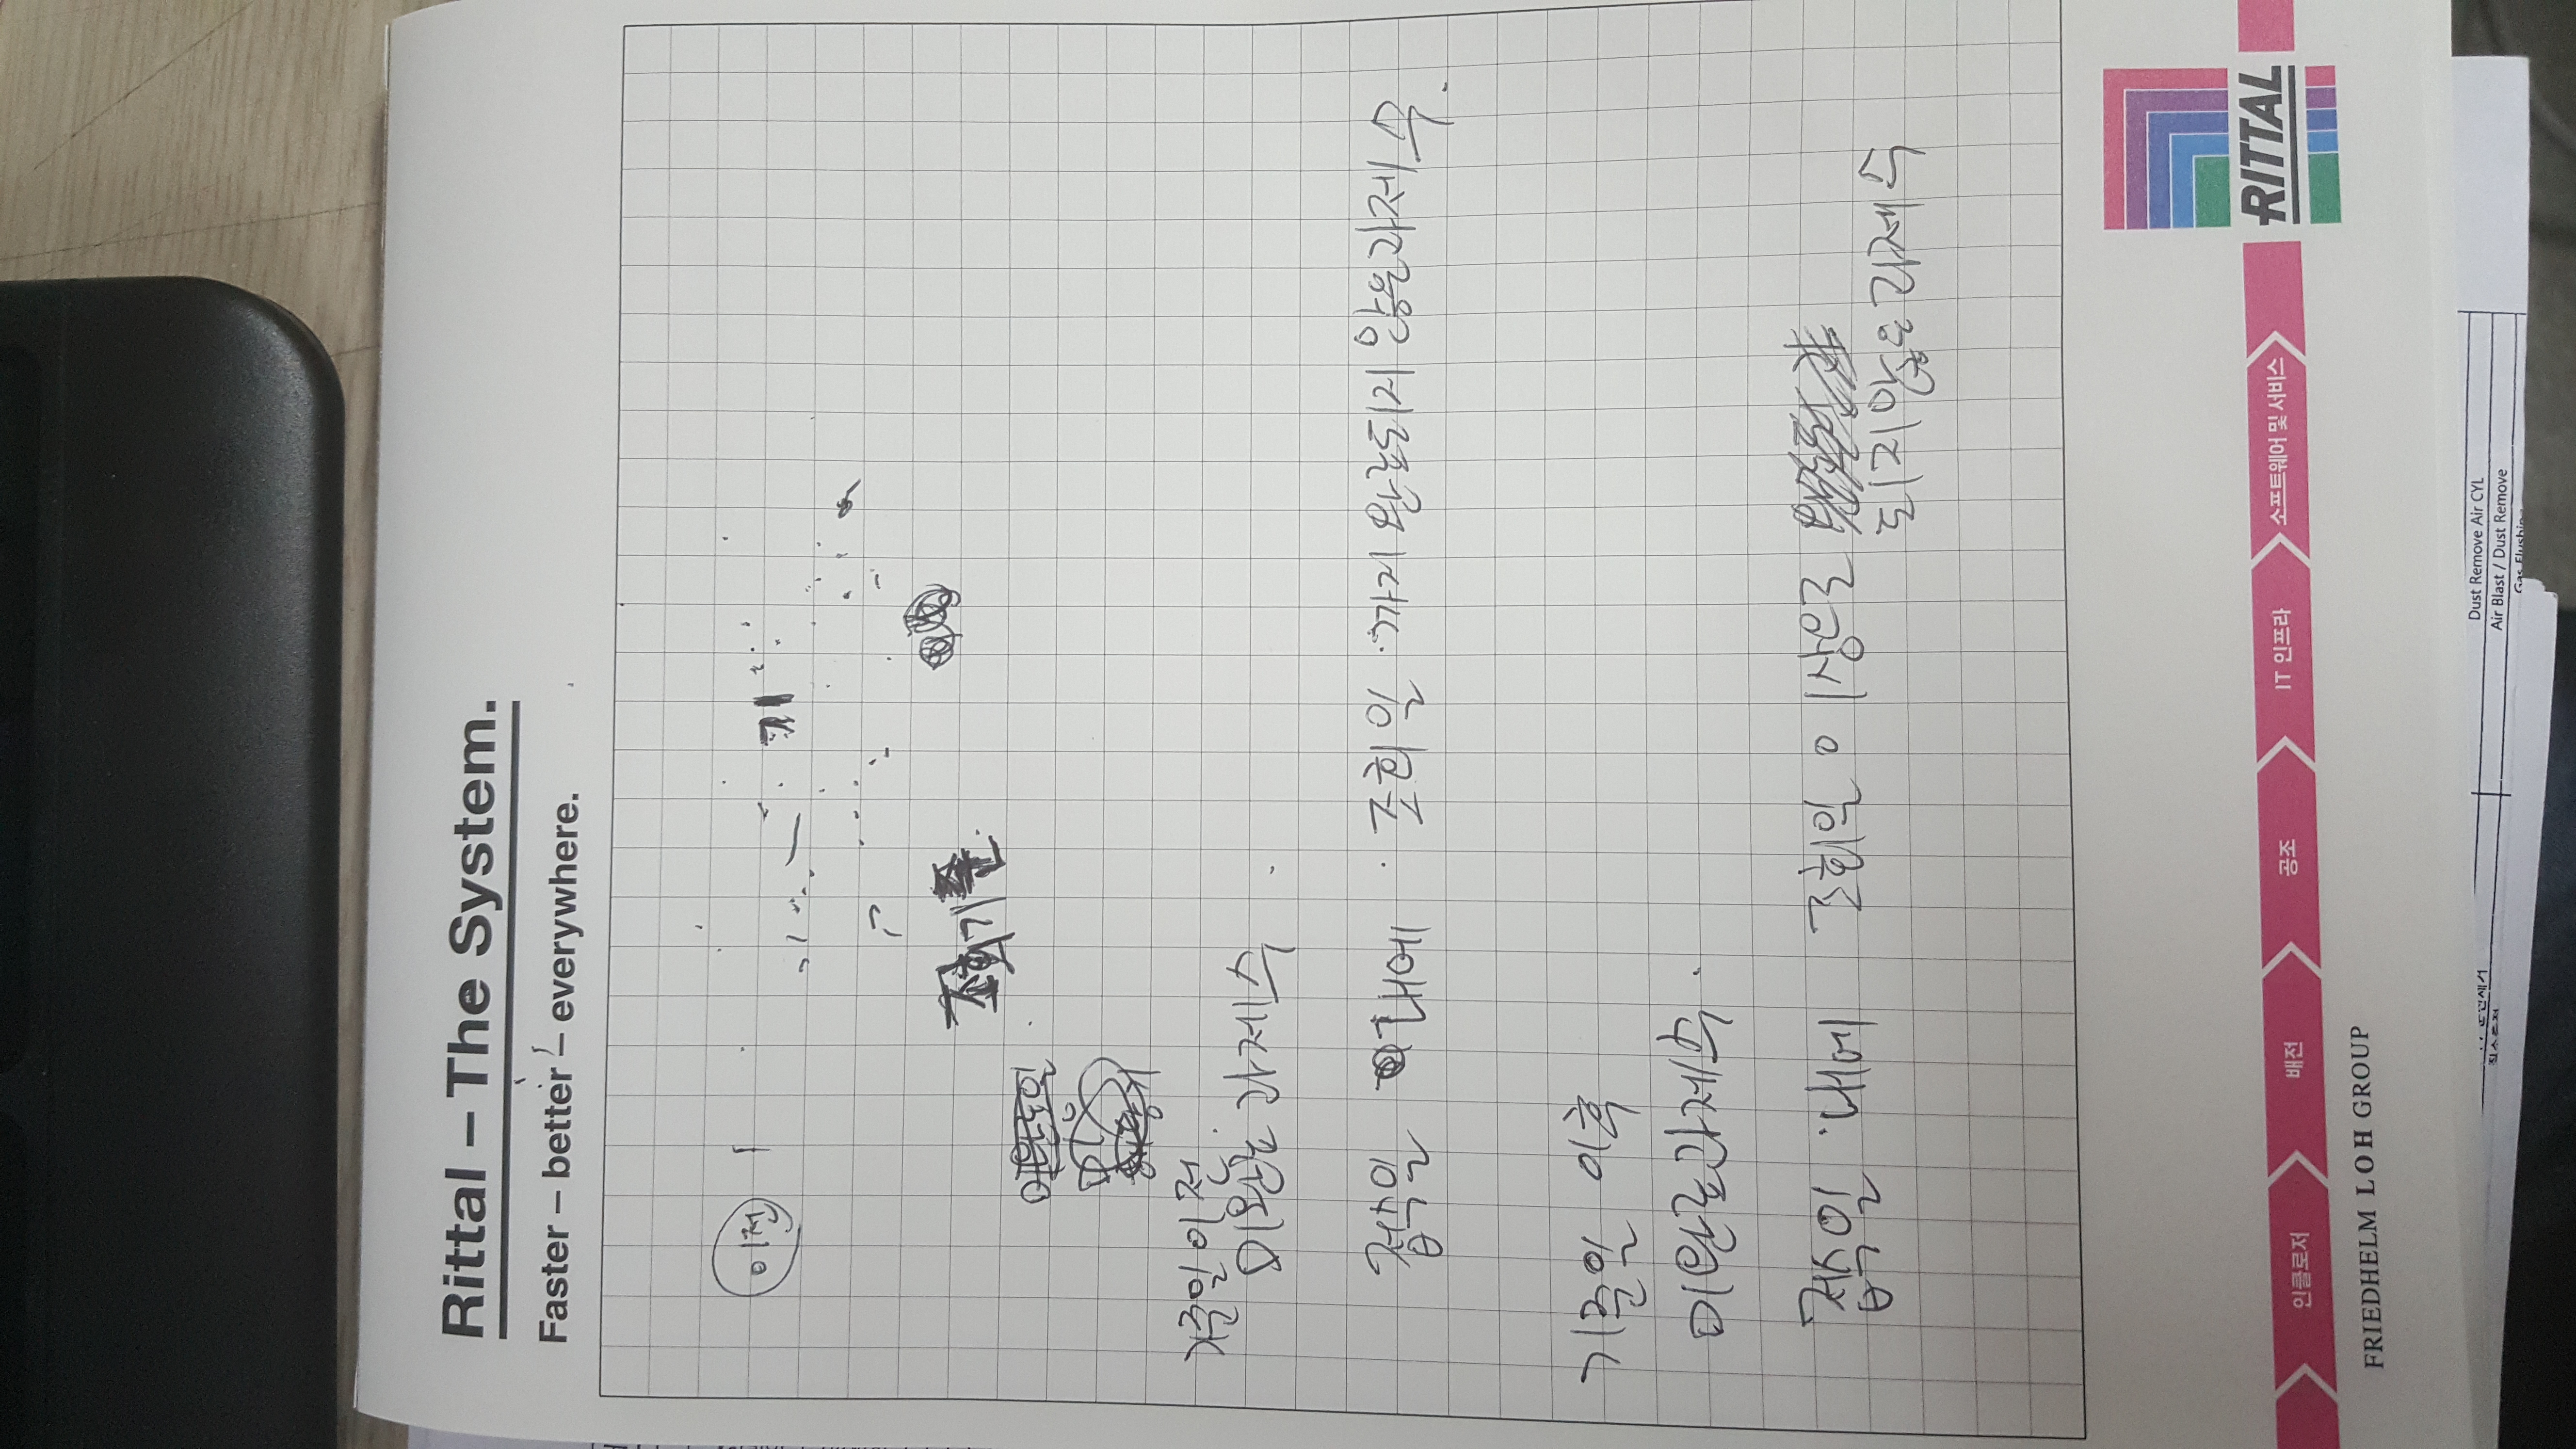 Rittal – The System.
Faster – better – everywhere.
이전
기
조회기준.
기준일 이전.
미완료 과제수
접수일 내에 조회일 까지 완료되지 않은과제 수.
기준일 이후
미완료과제수.
접수일 내에 조회일 이상으로
되지않은 과제 수
RITTAL
인클로저
배전
공조
IT 인프라
소프트웨어 및 서비스
FRIEDHELM LOH GROUP
Dust Remove Air CYL
Air Blast / Dust Remove